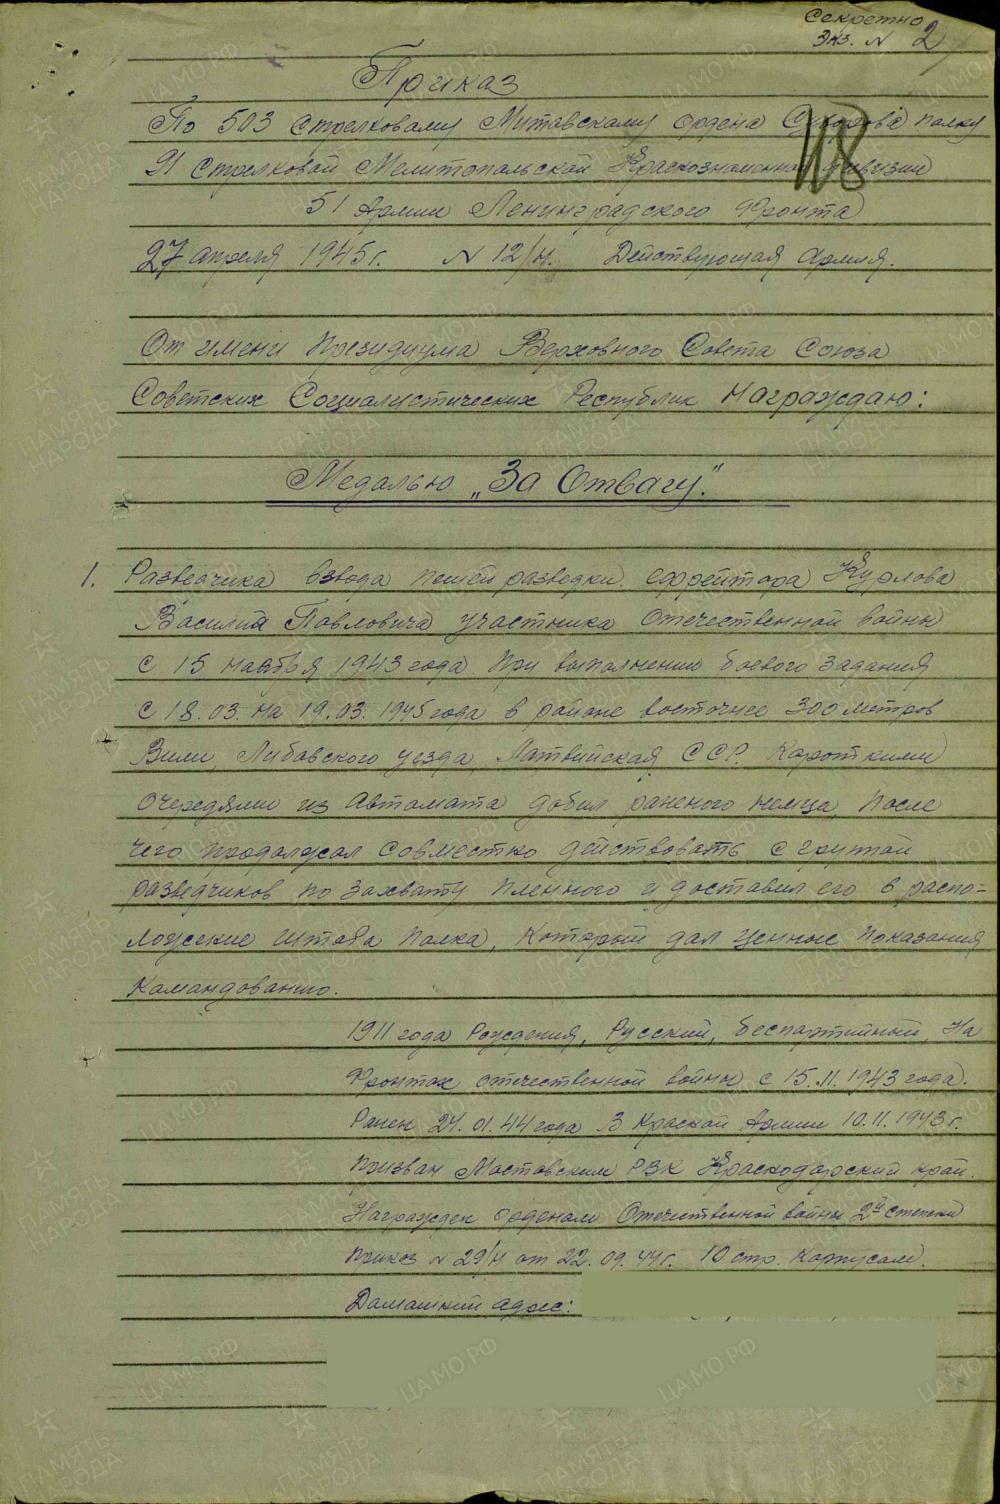 Секретно
Экз. № 2
118
Приказ
По 503 стрелковому Митавскому ордена Суворова полку
91 стрелковой Мелитопольской Краснознаменной дивизии
51 Армии Ленинградского Фронта
27 апреля 1945 г. № 12/н. Действующая Армия.
От имени Президиума Верховного Совета Союза
Советских Социалистических Республик Награждаю:
Медалью „За Отвагу".
1. Разведчика взвода пешей разведки ефрейтора Курлова
Василия Павловича участника отечественной войны
с 15 ноября 1943 года При выполнении боевого задания
с 18.03. на 19.03. 1945 года в районе восточнее 300 метров
Вили, Либавского уезда, Латвийская ССР. Короткими
очередями из Автомата добил раненого немца, После
чего продолжал совместно действовать с группой
разведчиков по захвату пленного и доставил его в распо-
ложение штаба полка, Который дал ценные показания
Командованию.
1911 года Рождения, Русский, беспартийный, На
Фронтах отечественной войны с 15.11.1943 года.
Ранен 24.01.44 года В Красной Армии 10.11.1943 г.
Призван Мостовским РВК Краснодарский край.
Награжден орденом Отечественной войны 2й степени
Приказ № 29/н от 22.09.44 г. 10 стр. Корпусом.
Домашний адрес:
ПАМЯТЬ НАРОДА
ЦА МО РФ